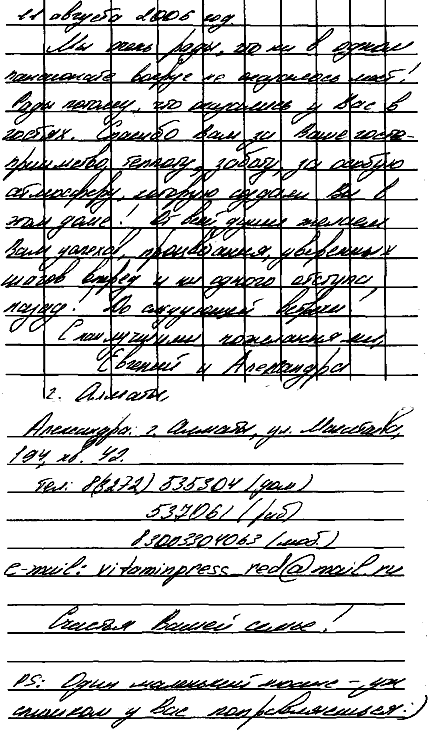 11 августа 2006 год.
Мы очень рады, что ни в одном
пансионате вокруг не оказалось мест!
Рады потому, что оказались у Вас в
гостях. Спасибо Вам за Ваше госте-
приимство, теплоту, заботу, за особую
атмосферу, которую создали Вы в
этом доме! От всей души желаем
Вам успехов, процветания, уверенных
шагов вперед и ни одного отступа
назад! До следующей встречи!
С наилучшими пожеланиями,
Евгений и Александра
г. Алматы
Александра: г. Алматы, ул.
194, кв. 42.
тел: 8(3272) 535304 (дом)
537061 (раб)
83003304063 (моб.)
e-mail: vitaminpress_red@mail.ru
Счастья Вашей семье!
PS: Один маленький нюанс – уж
слишком у Вас поправляешься:)